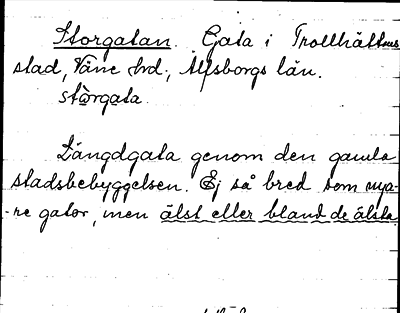 Storgatan. Gata i Trollhättans
stad, Väne hrd., Älfsborgs län.
stòrgata
Längdgata genom den gamla
stadsbebyggelsen. Ej så bred som nya-
-re gator, men älst eller bland de älsta